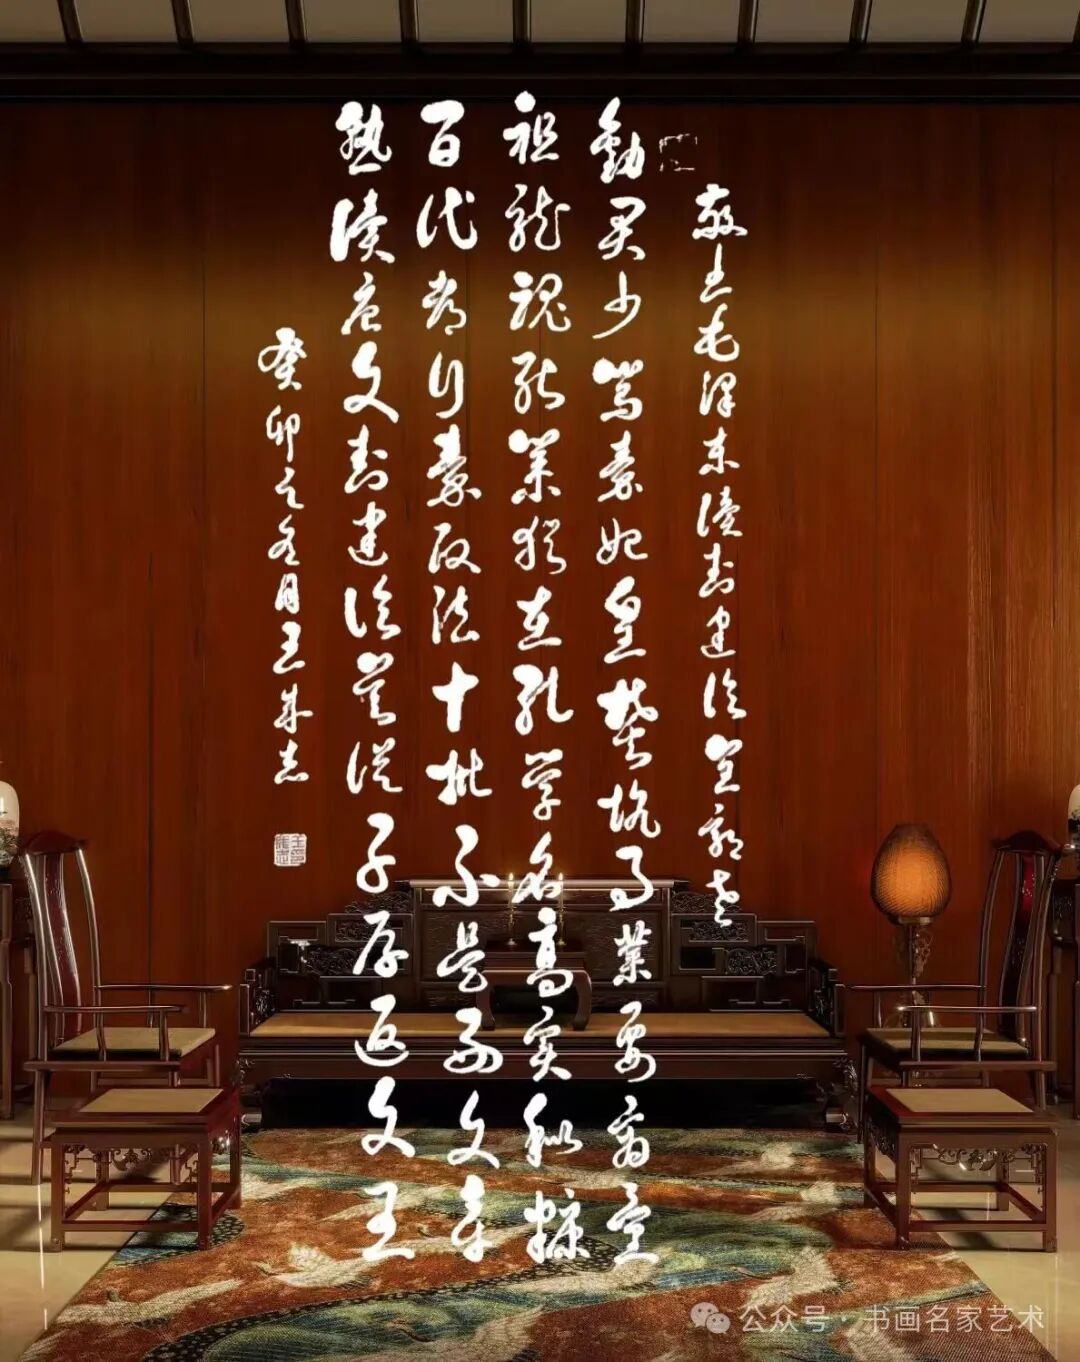 敬书毛泽东读封建论呈郭老
勸君少罵秦始皇焚坑事業要商量
祖龍魂死業猶在孔学名高实秕糠
百代都行秦政法十批不是好文章
熟讀唐文封建論莫從子厚返文王
癸卯之冬月王成志
公众号·书画名家艺术